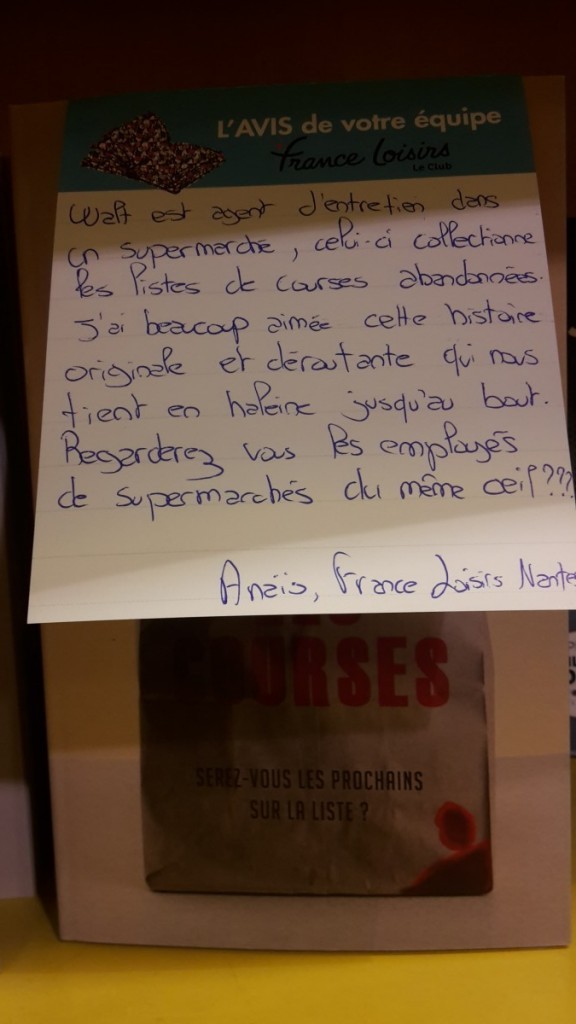 L'AVIS de votre équipe
France Loisirs
Le Club
Walt est agent d'entretien dans
un supermarché, celui-ci collectionne
les listes de courses abandonnées.
J'ai beaucoup aimée cette histoire
originale et déroutante qui nous
tient en haleine jusqu'au bout.
Regarderez vous les employés
de supermarchés du même oeil???
Anaïs, France Loisirs Nantes
COURSES
SEREZ-VOUS LES PROCHAINS
SUR LA LISTE ?